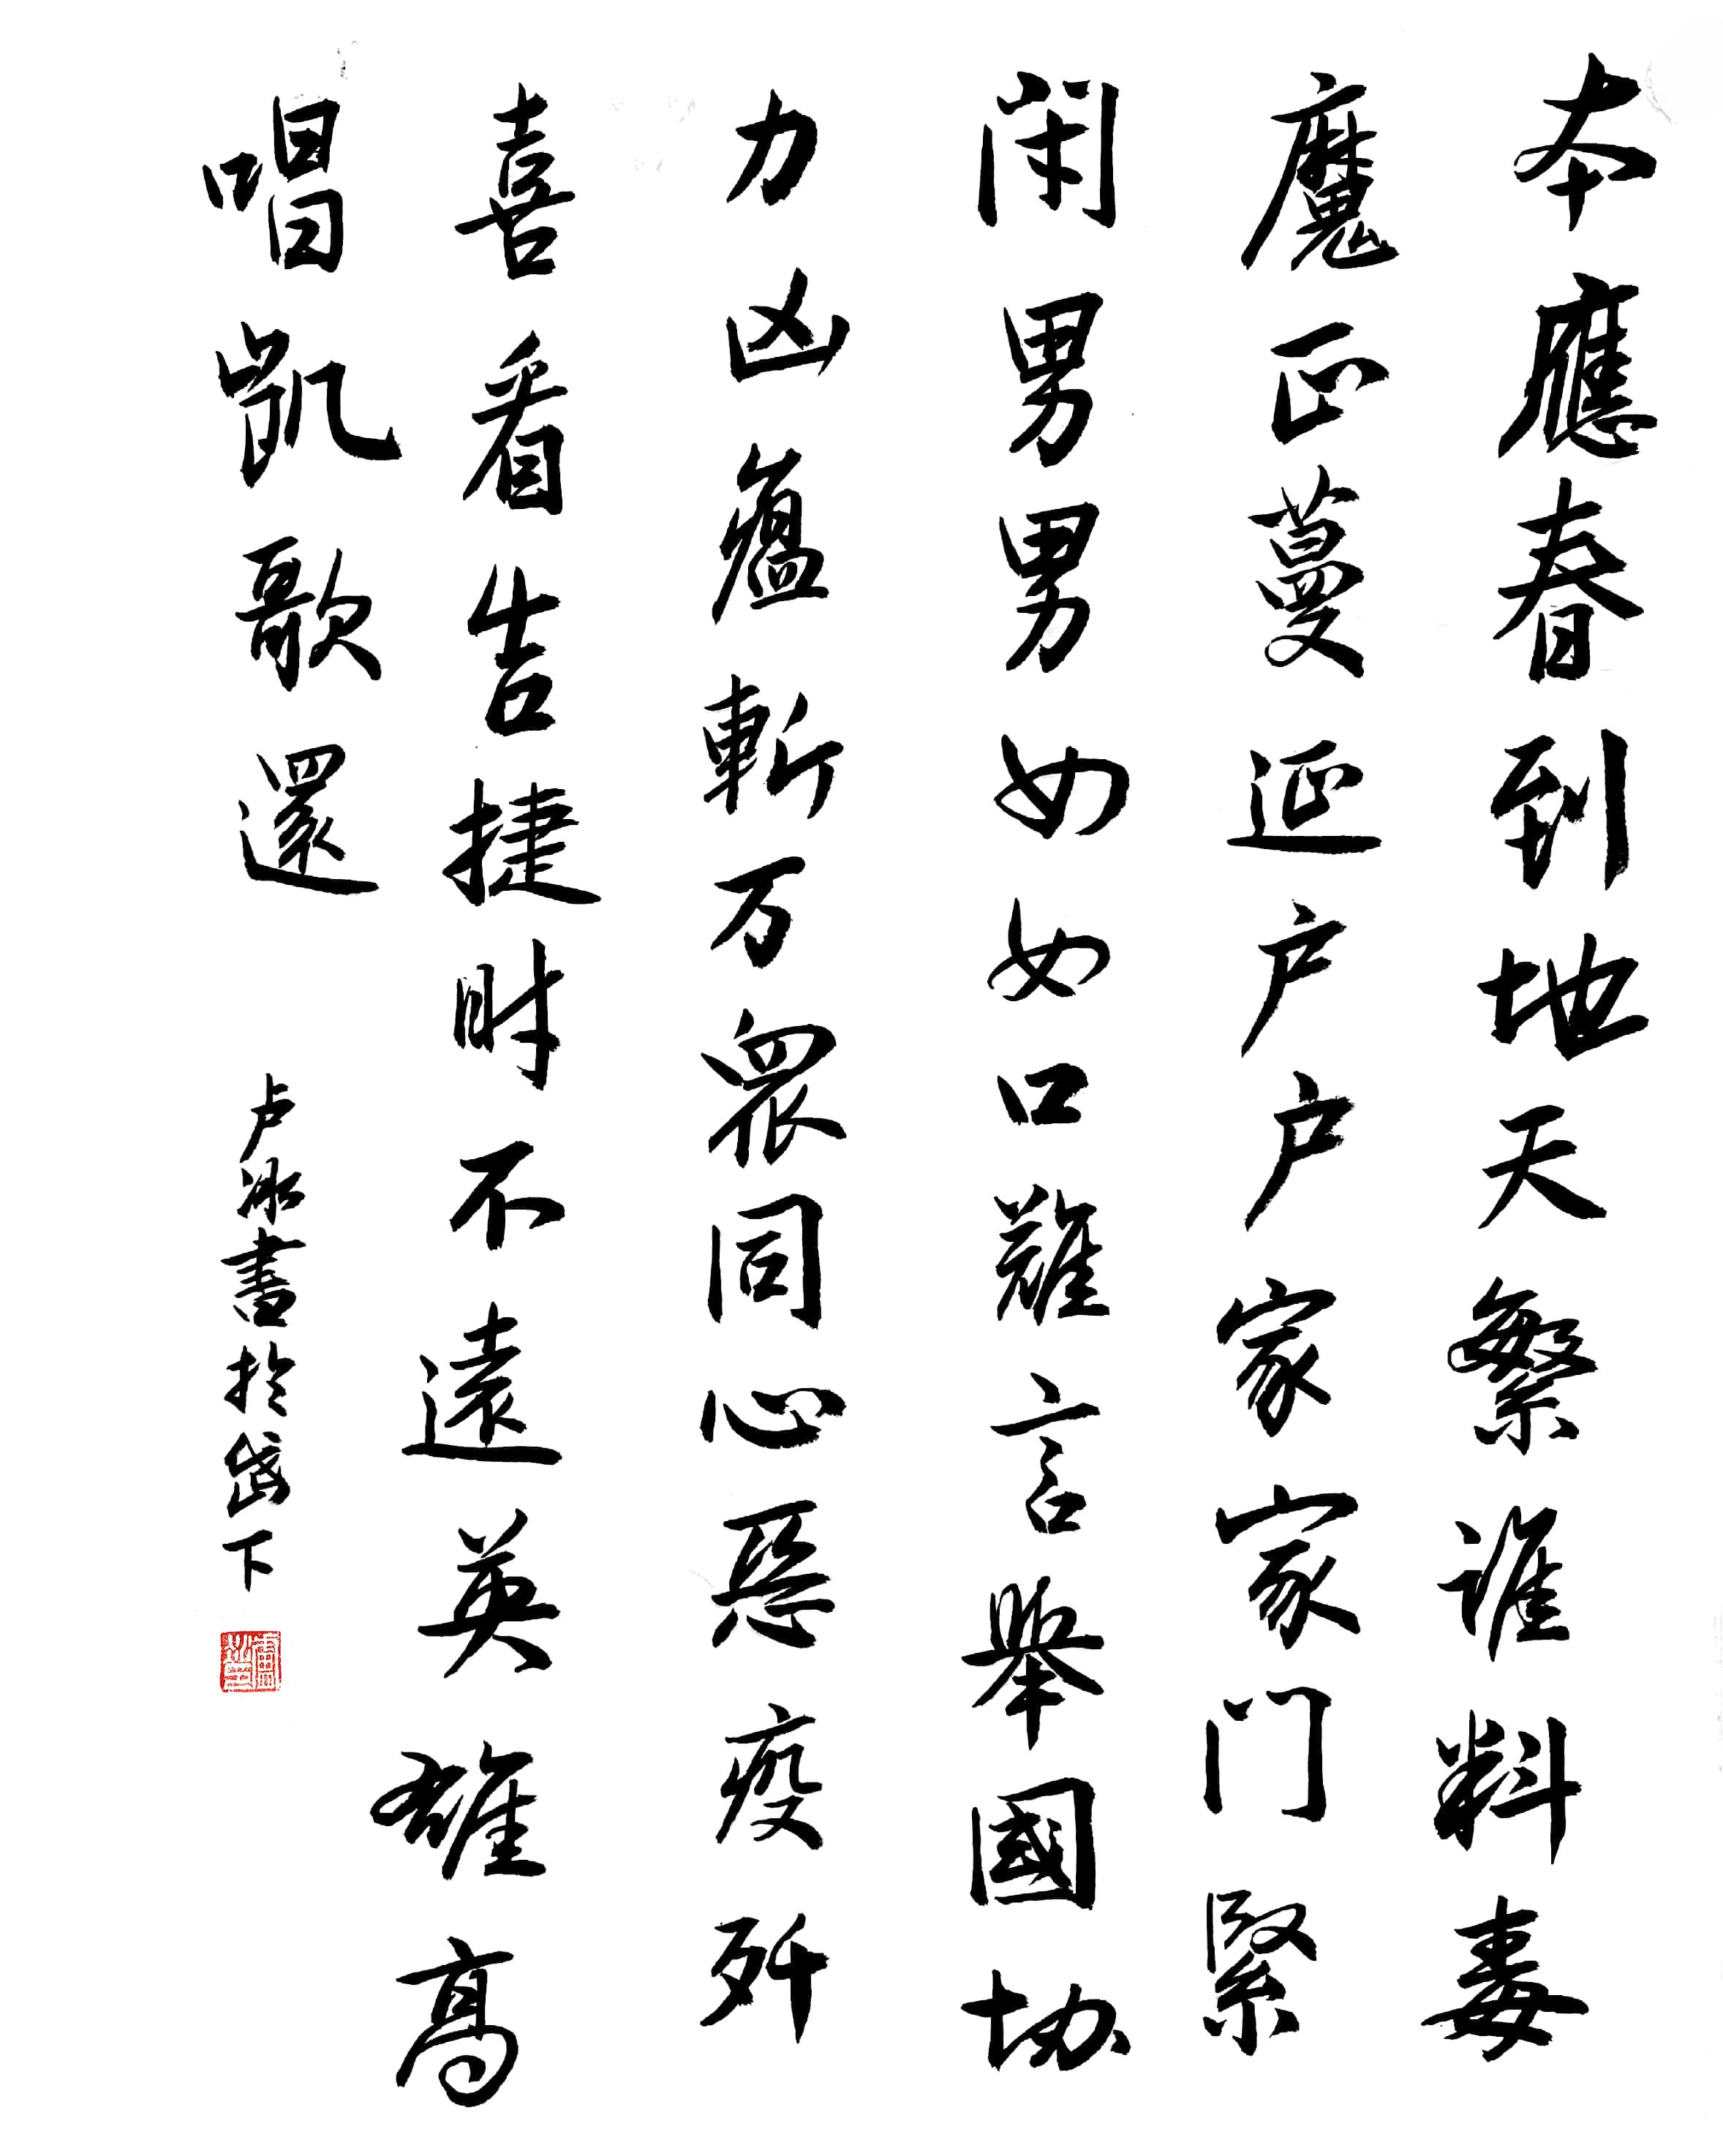 本應春到地天繁谁料毒
魔正蔓延户户家家门緊
闭男男女女口難言舉國协
力凶瘟斬万衆同心惡疫歼
喜看告捷时不遠英雄高
唱凱歌還
卢冰書於岱下